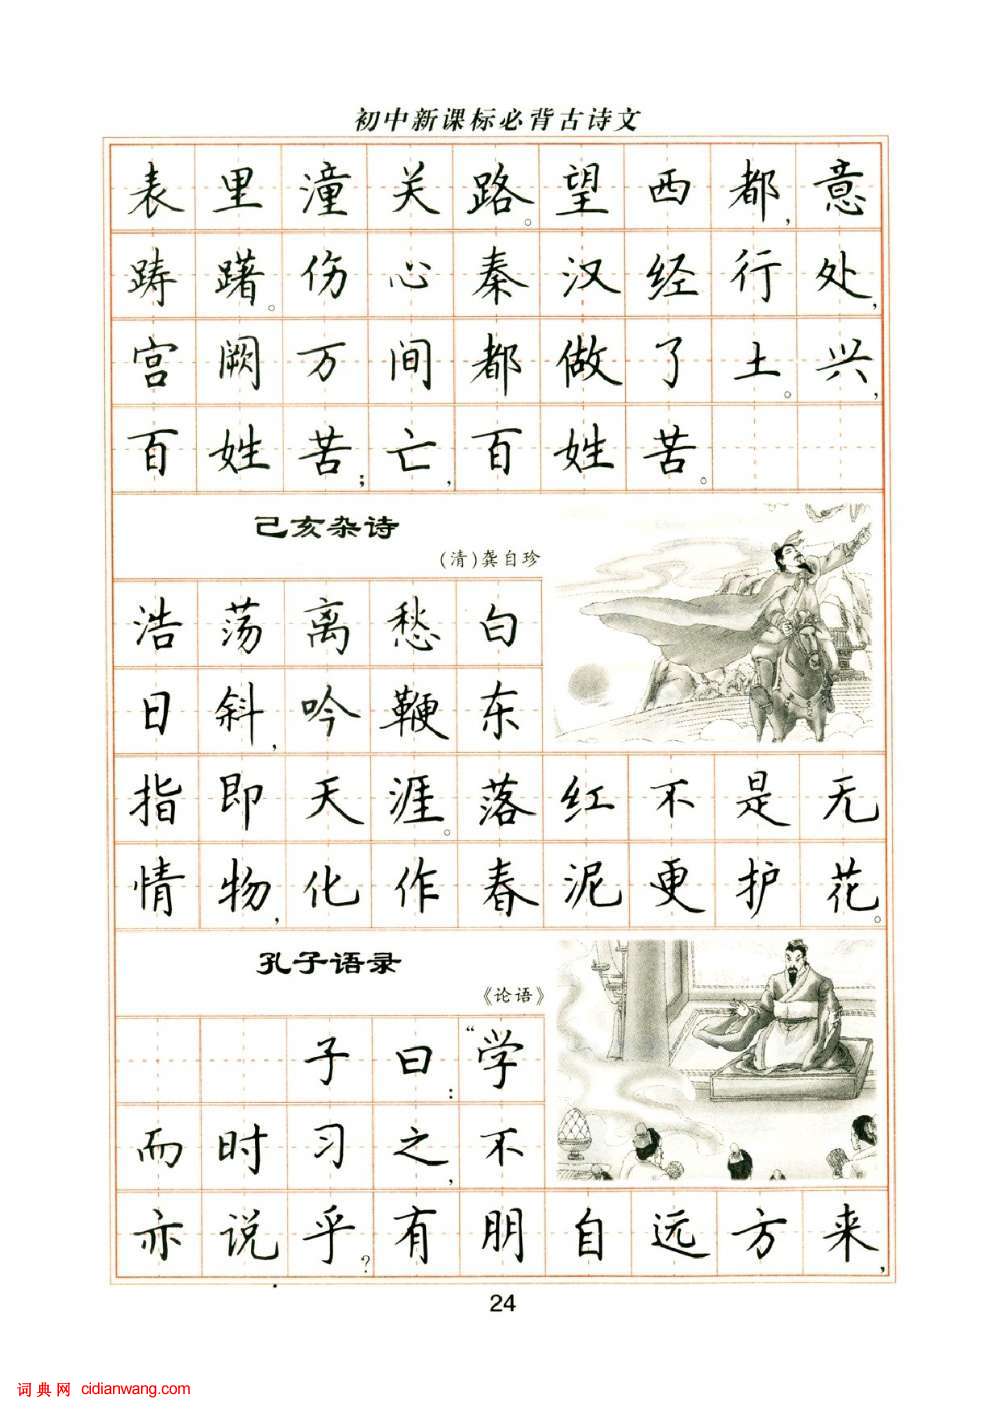 初中新课标必背古诗文
表里潼关路。望西都,意
踌躇。伤心秦汉经行处,
宫阙万间都做了土。兴,
百姓苦;亡,百姓苦。
己亥杂诗
(清)龚自珍
浩荡离愁白
日斜,吟鞭东
指即天涯。落红不是无
情物,化作春泥更护花。
孔子语录
《论语》
子曰:“学
而时习之,不
亦说乎?有朋自远方来,
24
词典网 cidianwang.com